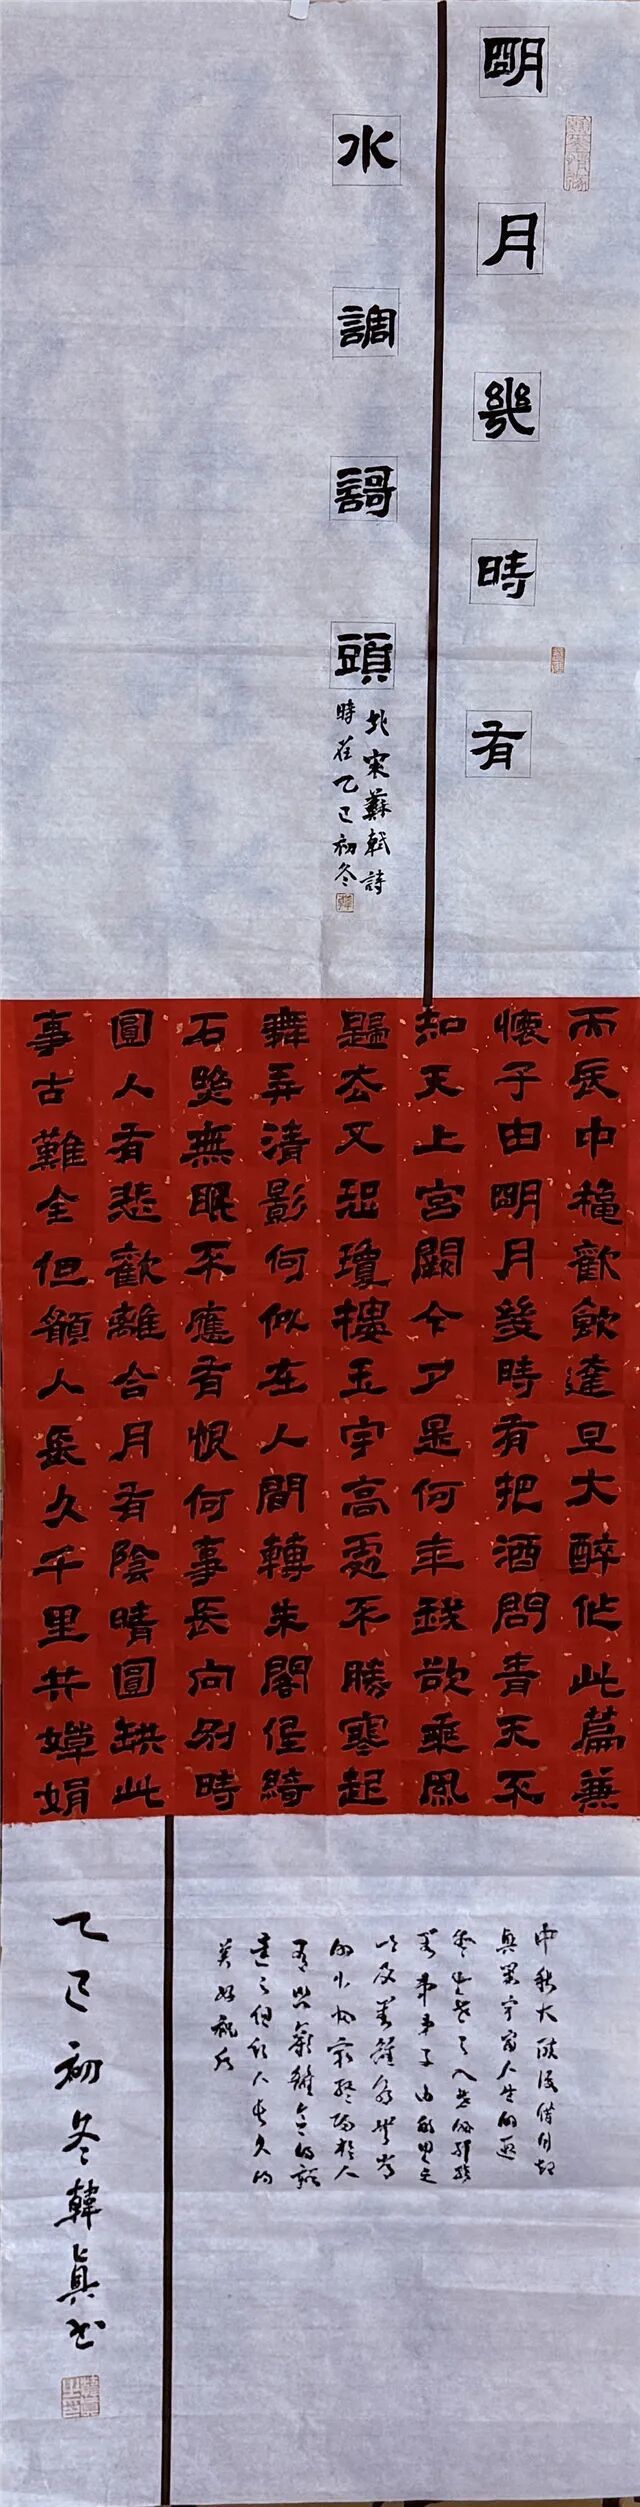 朙月幾時有
水調謌頭
北宋蘇軾詩
時在乙巳初冬
丙辰中秋歡飲達旦大醉作此篇兼
懷子由朙月幾時有把酒問青天不
知天上宮闕今夕是何年我欲乘風
歸去又恐瓊樓玉宇高處不勝寒起
舞弄清影何似在人間轉朱閣低綺
戶照無眠不應有恨何事長向別時
圓人有悲歡離合月有陰晴圓缺此
事古難全但願人長久千里共嬋娟
中秋大醉後借月
宇宙人生的
對弟弟子由的
以及
的
達了但願人長久的
美好祝願
乙巳初冬韓眞书